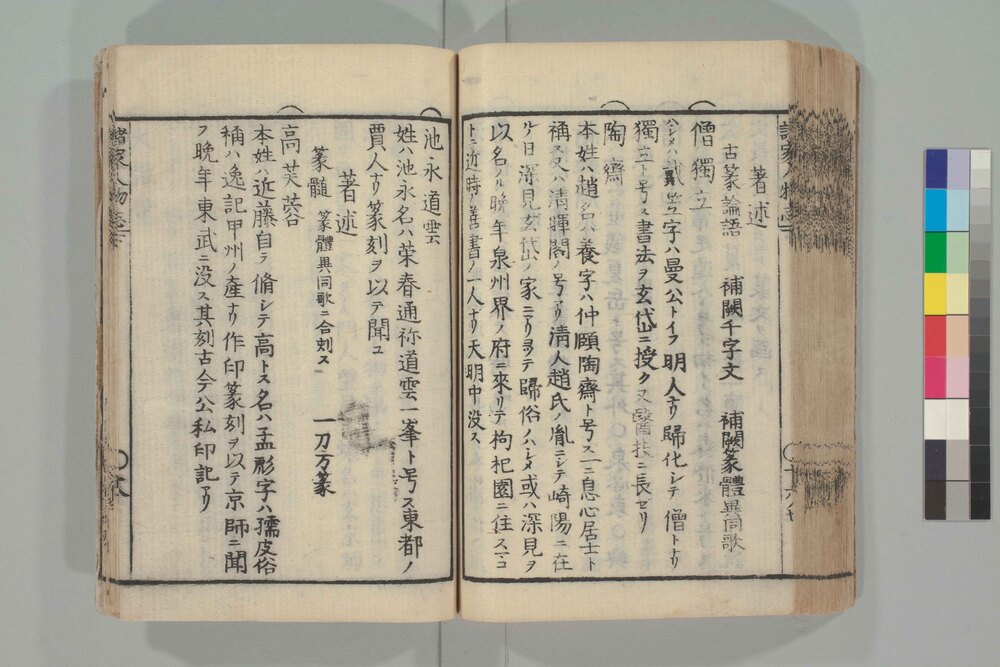 著述
古篆論語 補闕千字文 補闕篆體異同歌
僧獨立
ハシメハ戴笠字ハ曼公トイフ明人ナリ歸化シテ僧トナリ
獨立ト号ス書法ヲ玄岱ニ授ク又醫技ニ長セリ
陶齋
本姓ハ趙名ハ養字ハ仲頤陶齋ト号ス一ニ息心居士ト
稱ス又ハ清暉閣ノ号アリ清人趙氏ノ胤ニシテ崎陽ニ在
ル日深見玄岱ノ家ニヨリテ歸俗ノハシメ或ハ深見ヲ
以名ノル晩年泉州界ノ府ニ來リテ枸杞園ニ住スマコ
トニ近時ノ善書ノ一人ナリ天明中没ス
池永道雲
姓ハ池永名ハ榮春通称道雲一峯ト号ス東都ノ
賈人ナリ篆刻ヲ以テ聞ユ
著述
篆髓 篆體異同歌ニ合刻ス 一刀万篆
高芙蓉
本姓ハ近藤自ラ脩シテ高トス名ハ孟彪字ハ孺皮俗
稱ハ逸記甲州ノ産ナリ作印篆刻ヲ以テ京師ニ聞
フ晩年東武ニ没ス其刻古今公私印記アリ
諸家人物志